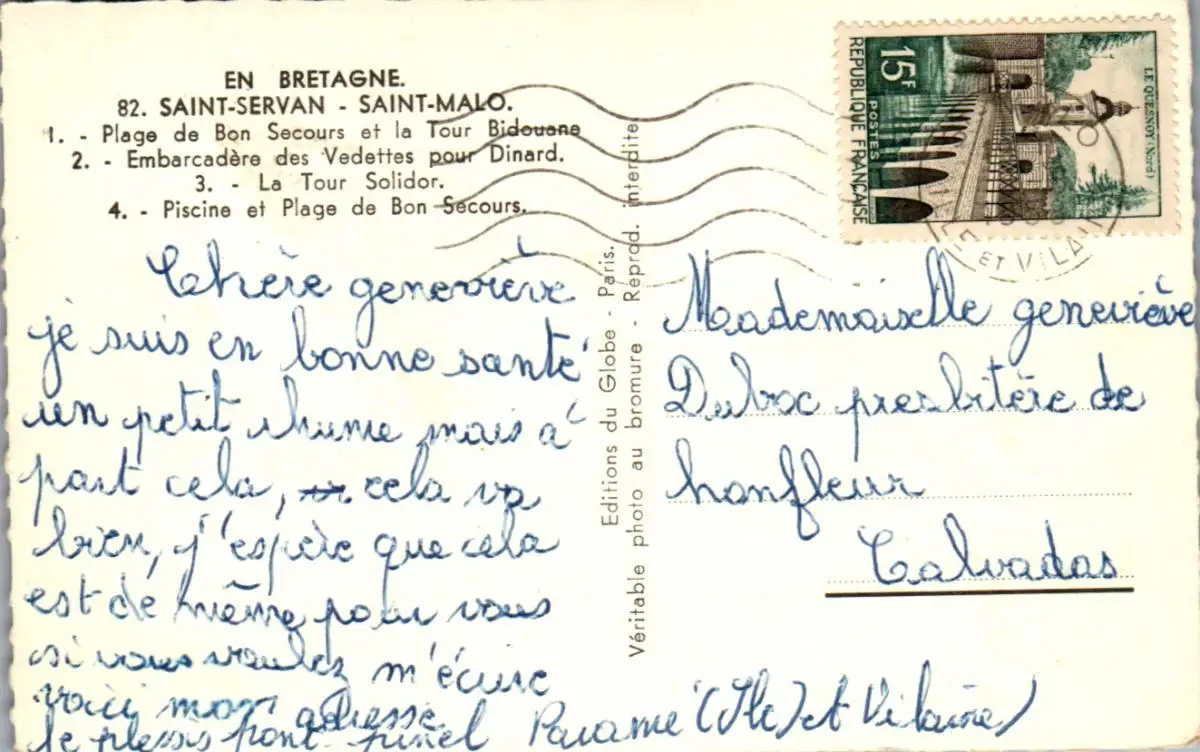 EN BRETAGNE.
82. SAINT-SERVAN - SAINT-MALO.
1. - Plage de Bon Secours et la Tour Bidouane
2. - Embarcadère des Vedettes pour Dinard.
3. - La Tour Solidor.
4. - Piscine et Plage de Bon Secours.
Chère geneviève
je suis en bonne santé
un petit rhume mais à
part cela, cela va
bien, j'espère que cela
est de même pour vous
si vous voulez m'écrire
voici mon adresse
le plessis pont pinel Paramé (Ile) et Vilaine)
Editions du Globe - Paris.
Véritable photo au bromure - Reprod. interdite.
15F
POSTES
REPUBLIQUE FRANÇAISE
LE QUESNOY (Nord)
ET VILAINE
Mademaiselle geneviève
Duboc presbitère de
honfleur
Calvados